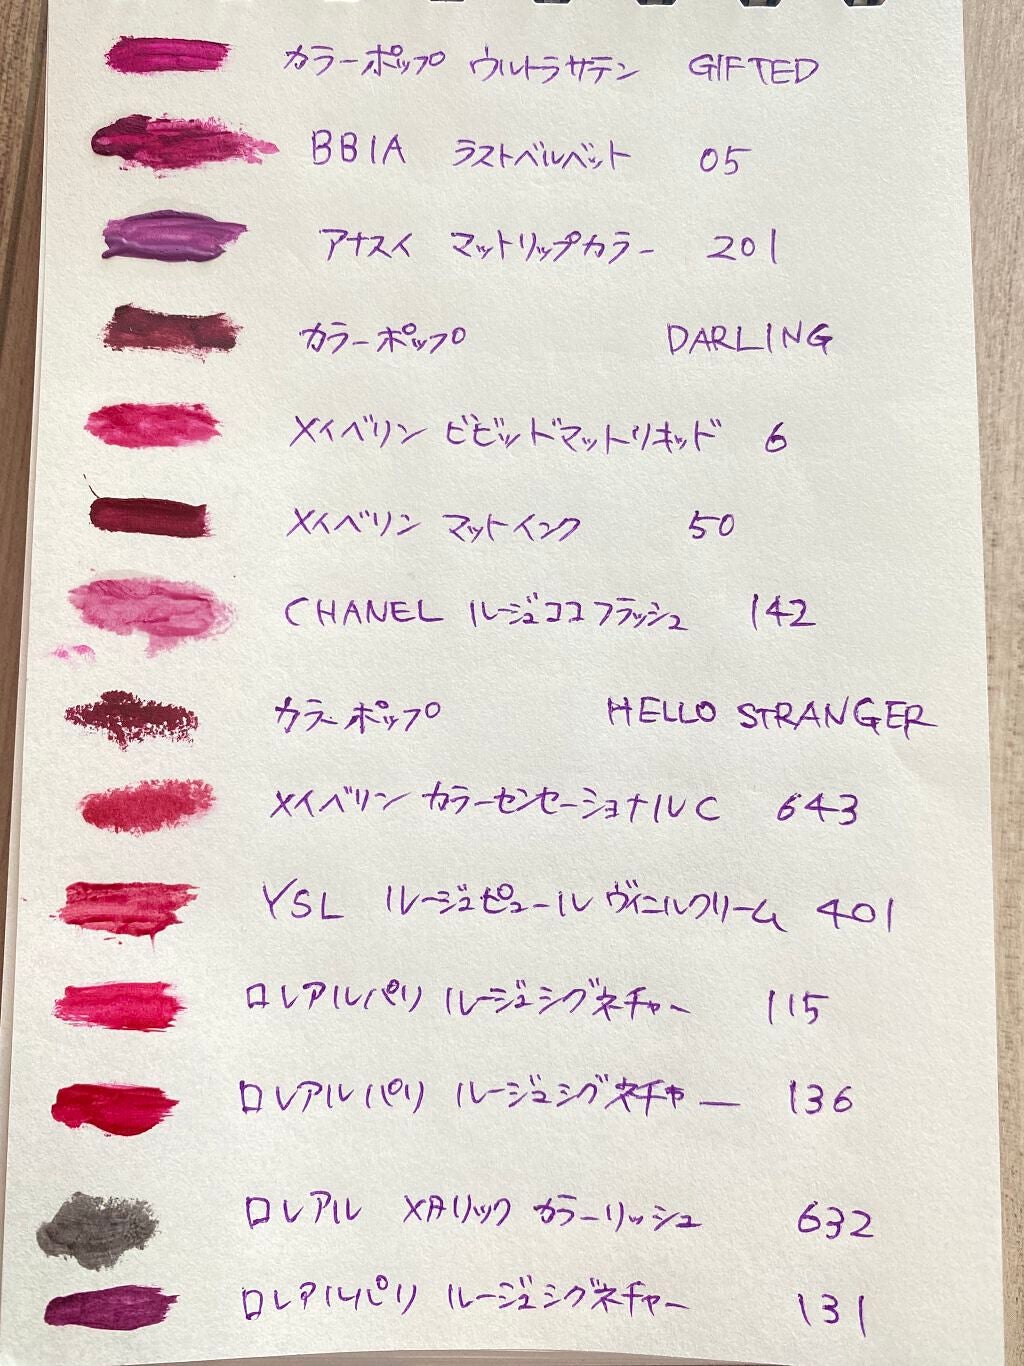 カラーポップ ウルトラサテン GIFTED
BBIA ラストベルベット 05
アナスイ マットリップカラー 201
カラーポップ DARLING
メイベリン ビビッドマットリキッド 6
メイベリン マットインク 50
CHANEL ルージュココフラッシュ 142
カラーポップ HELLO STRANGER
メイベリン カラーセンセーショナルC 643
YSL ルージュピュール ヴィニルクリーム 401
ロレアルパリ ルージュシグネチャー 115
ロレアルパリ ルージュシグネチャー 136
ロレアル メタリック カラーリッシュ 632
ロレアルパリ ルージュシグネチャー 131